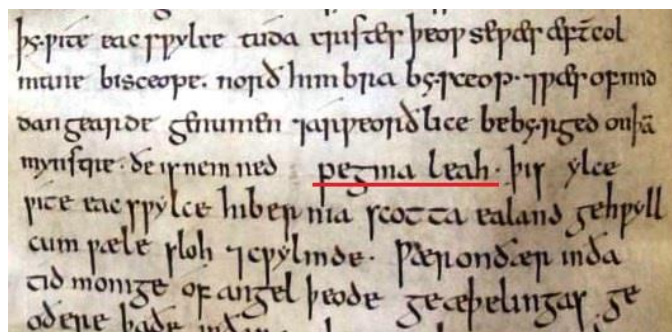 þys ƿite eac sƿylce tuda cristes þeoƿ se ƿæs æft̄ col
mane bisceope. norð himbria bysceop· ⁊ƿæs of mid
dangearde genumen ⁊arƿeorðlice bebyriged onþā
mynstre· ðe is nem ned ƿegma leah· þis ẏlce
ƿite eac sƿylce hibernia scotta ealand gehƿyll
cum ƿæle sloh ⁊cƿylmde· Ƿæronðær inða
tid monige of angel þeode ge æþelingas ge
oðere